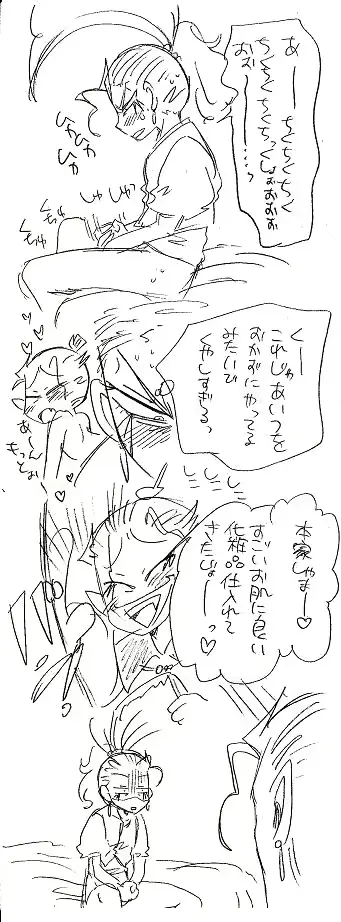 あーーちくちくちく
ちくちくちくちっくしょおおおお
おお…
くちゅ
くちゅ
くー
これじゃあいつを
おかずにやってる
みたいで
くやしすぎるっ
あーん
もっとぉ
本家しゃまー♡
すごいお肌に良い
化粧品仕入れて
きたじょーっ♡